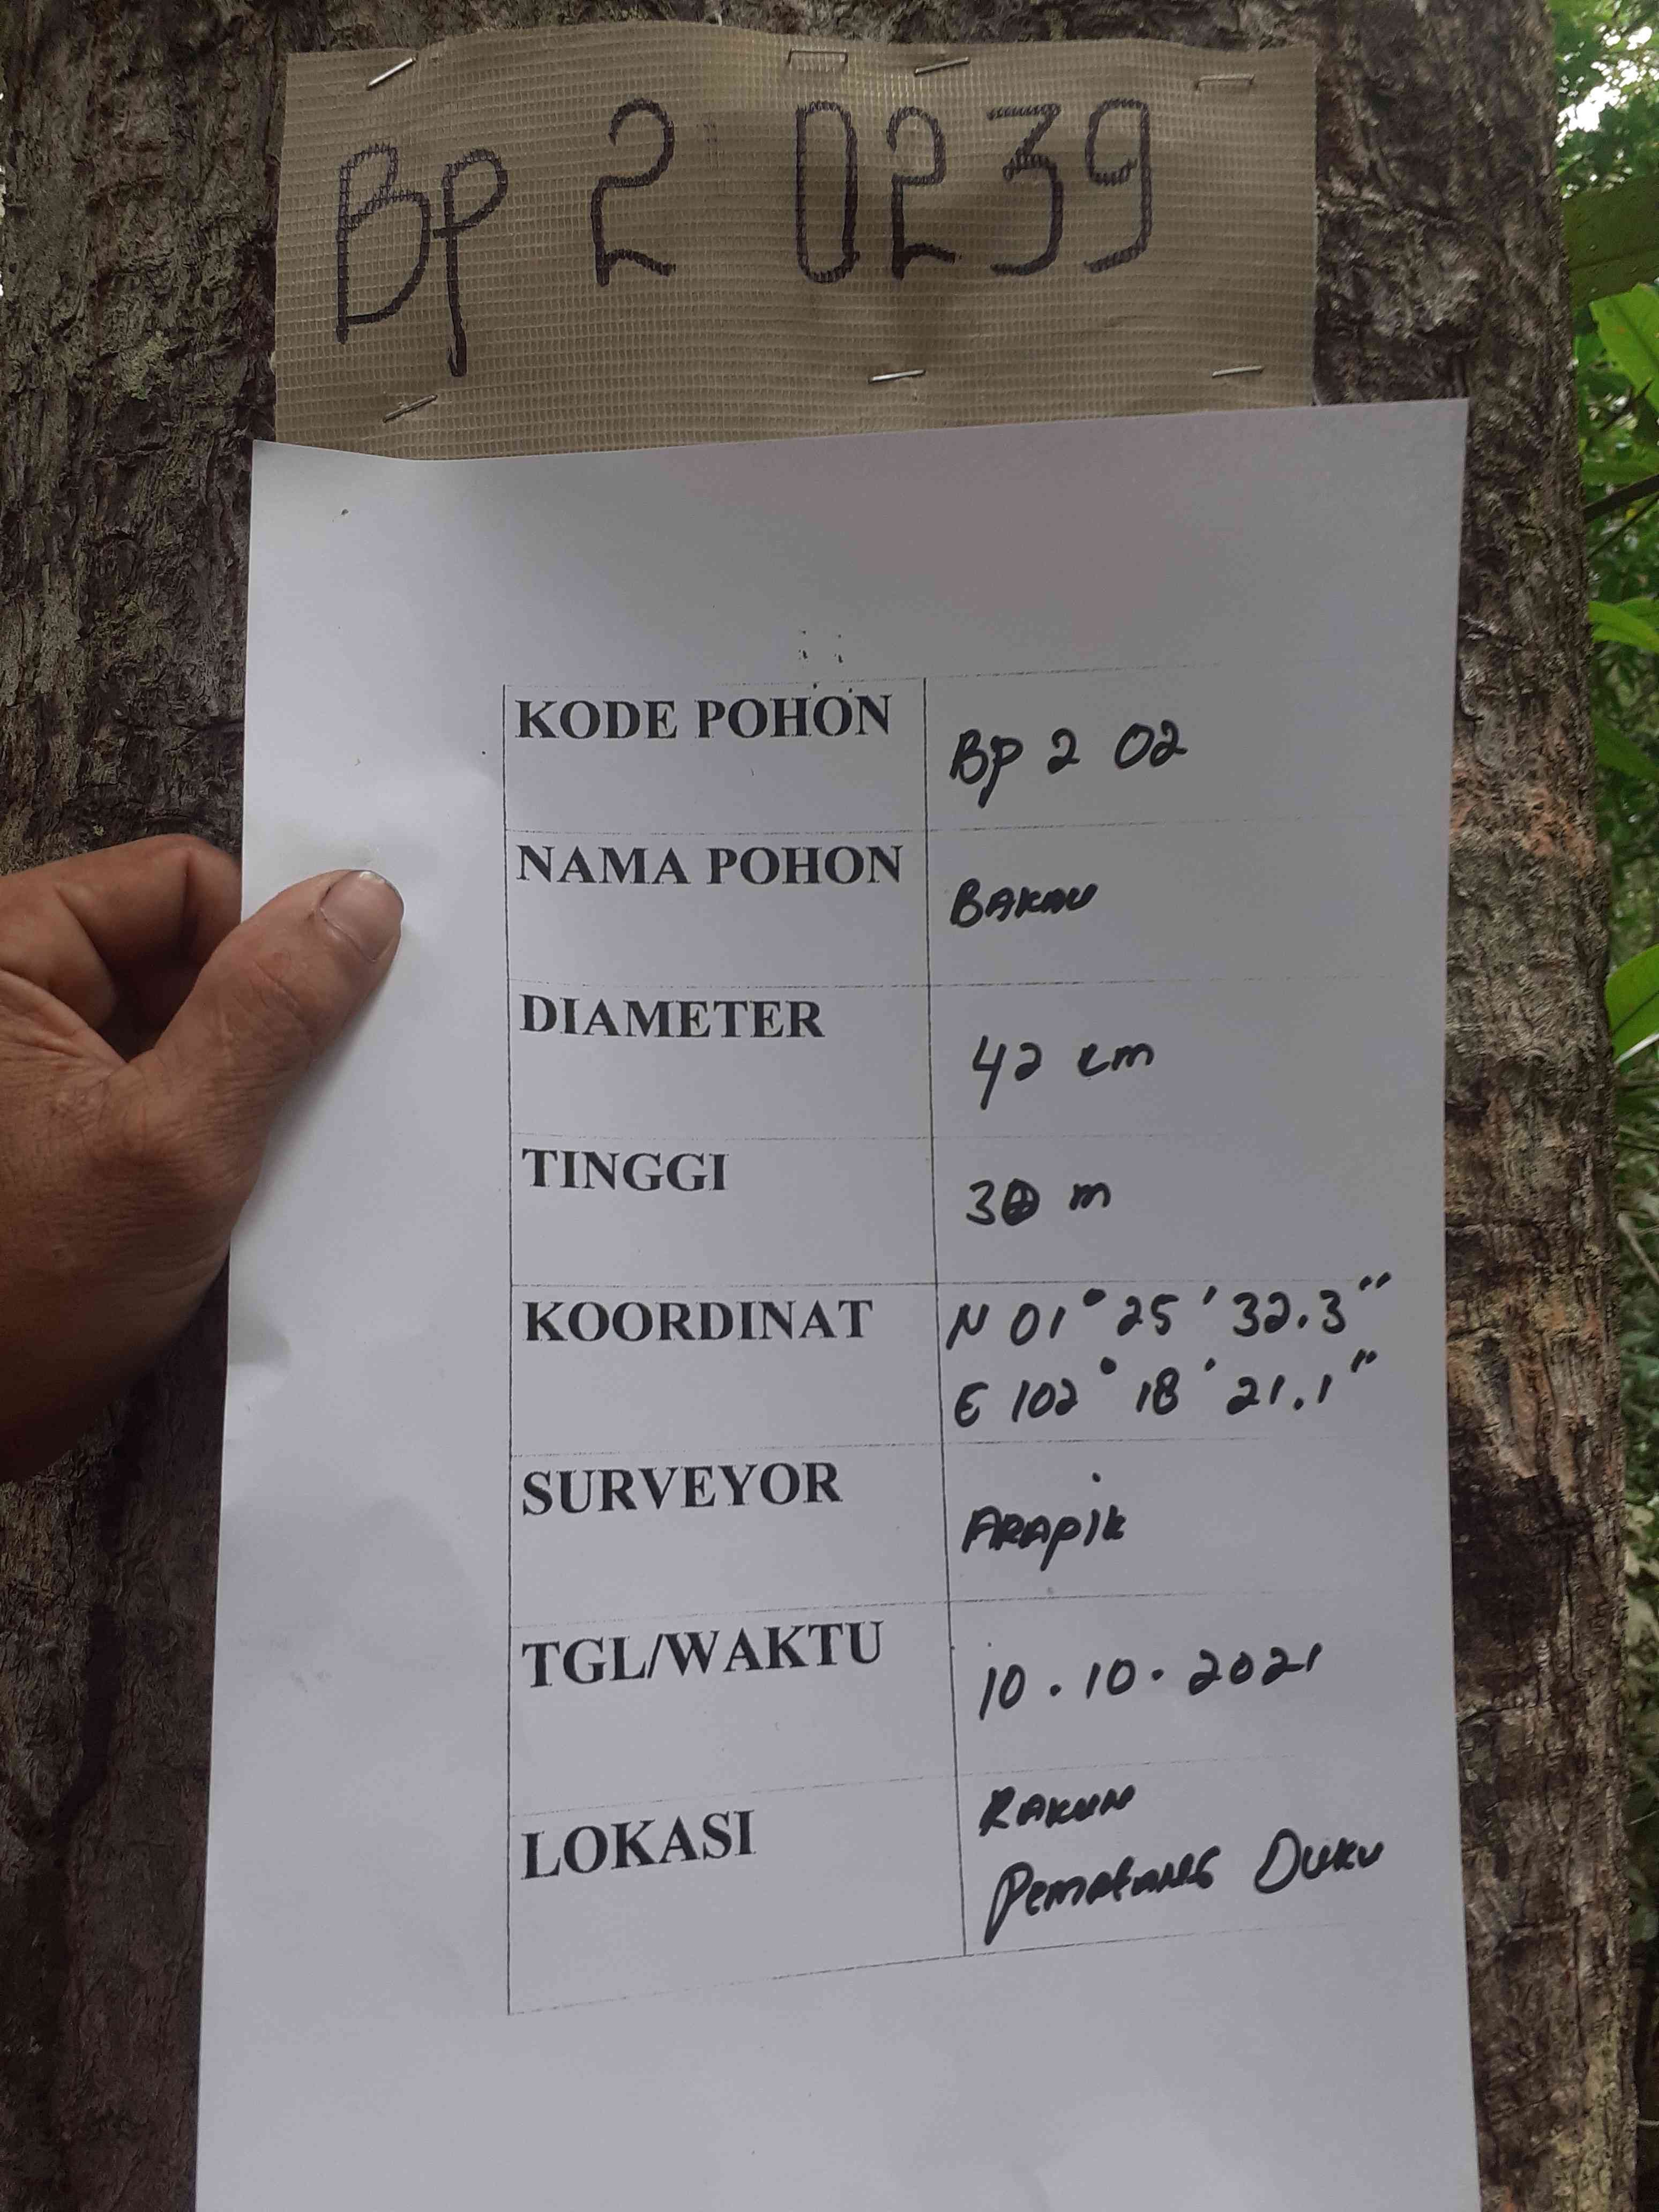 BP 2 0239
KODE POHON BP 2 02
NAMA POHON BAKAU
DIAMETER 42 cm
TINGGI m
KOORDINAT N 01° 25' 32.3"
E 102° 18' 21.1"
SURVEYOR ARAPIK
TGL/WAKTU 10.10.2021
LOKASI
Pematang Duku